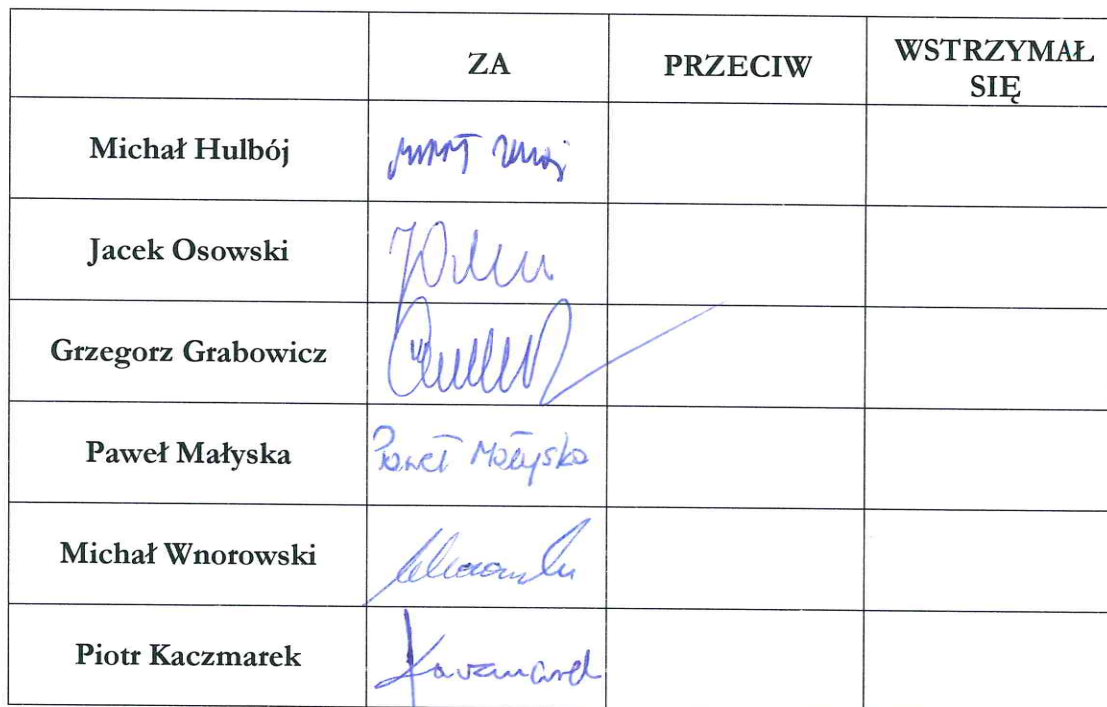 ZA
PRZECIW
WSTRZYMAŁ
SIĘ
Michał Hulbój
Jacek Osowski
Grzegorz Grabowicz
Paweł Małyska
Paweł Małyska
Michał Wnorowski
Piotr Kaczmarek
Kaczmarek